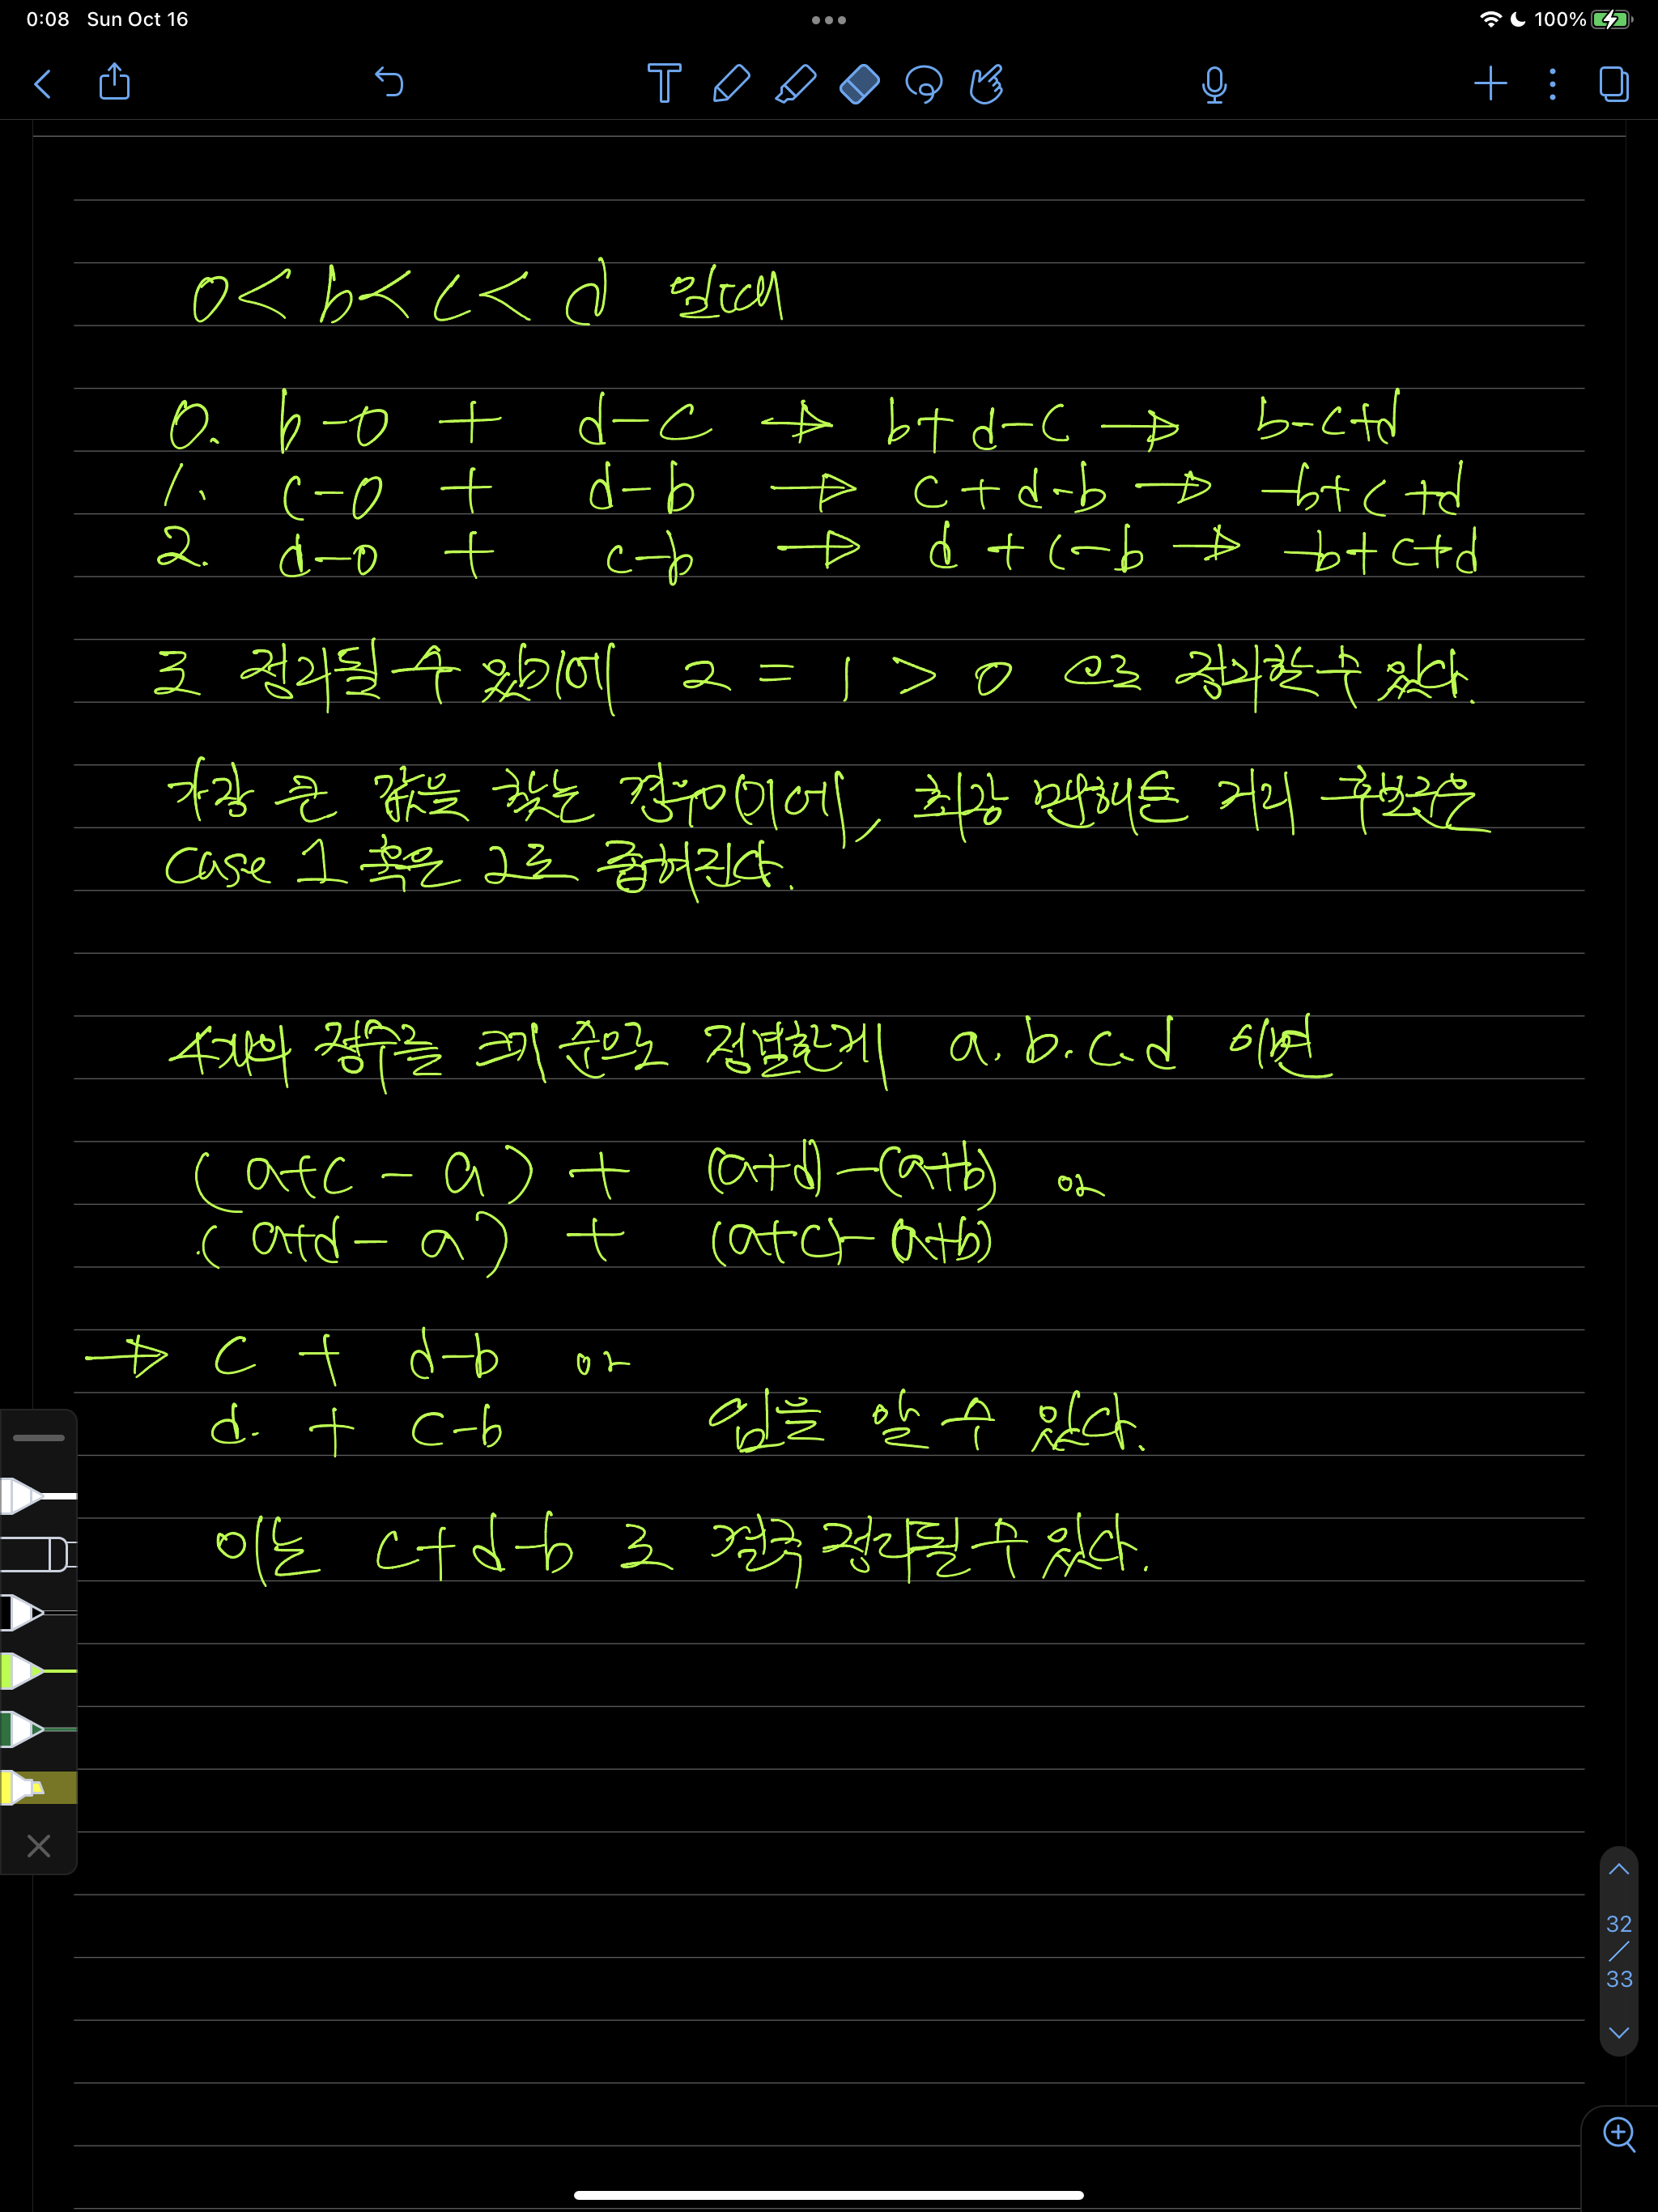 0:08 Sun Oct 16
100%
0<b<c<d 일때
0. b-0 + d-c → b+d-c → b-c+d
1. c-0 + d-b → c+d-b → -b+c+d
2. d-0 + c-b → d+c-b → -b+c+d
로 정리될 수 있기에 2 = 1 > 0 으로 정리할 수 있다.
가장 큰 값을 찾는 경우이기에, 최장 맨해튼 거리 후보군은
case 1 혹은 2로 좁혀진다.
4개의 정수를 크기 순으로 정렬한게 a. b. c. d 이면
(a+c - a) + (a+d)-(a+b) or
(a+d - a) + (a+c)-(a+b)
→ c + d-b or
d. + c-b 임을 알 수 있다.
이는 c+d-b 로 결국 정리될 수 있다.
32
33